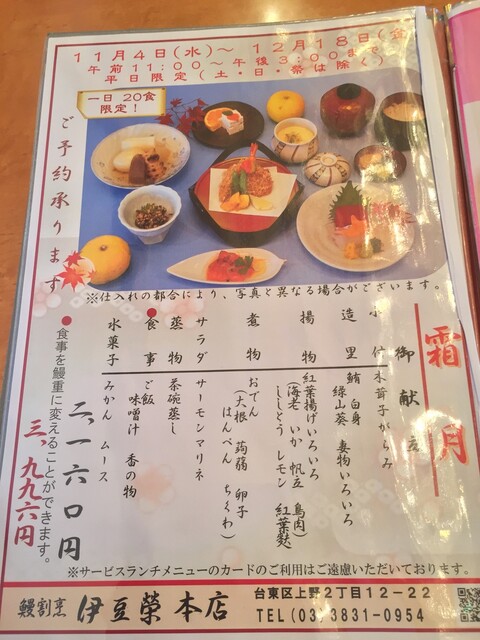 11月4日(水)～12月18日(金)
午前11:00～午後3:00まで
平日限定(土・日・祭は除く)
一日20食
限定!
ご予約承ります
※仕入れの都合により、写真と異なる場合がございます。
霜月
御献立
小付 木茸子がらみ
造里 鮪 白身
緑山葵 妻物いろいろ
揚物 紅葉揚げいろいろ
(海老 いか 帆立 鳥肉)
ししとう レモン 紅葉麩
煮物 おでん
(大根 蒟蒻 卵子
はんぺん ちくわ)
サラダ サーモンマリネ
蒸物 茶碗蒸し
食事 ご飯
味噌汁 香の物
水菓子 みかん ムース
二、一六〇円
●食事を鰻重に変えることができます。
三、九九六円
※サービスランチメニューのカードのご利用はご遠慮いただいております。
鰻割烹 伊豆榮 本店
台東区上野2丁目12-22
TEL(03)3831-0954